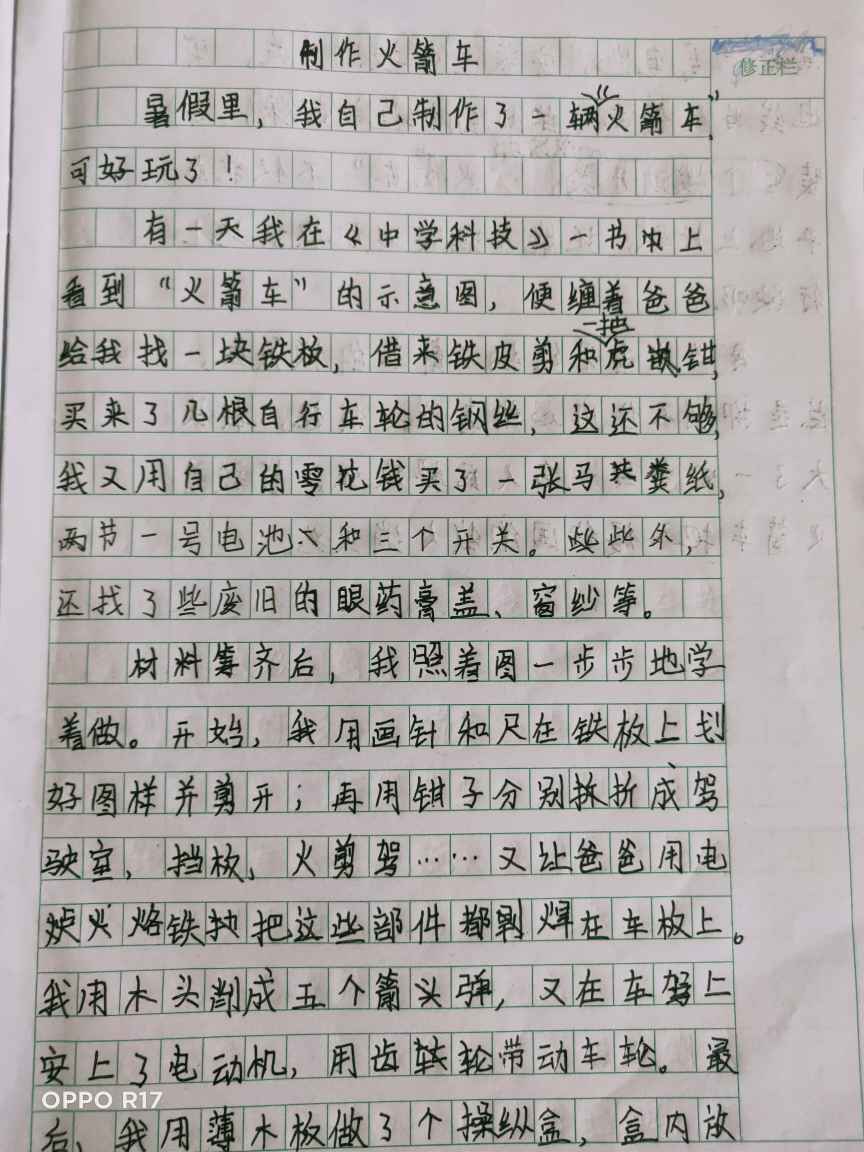 制作火箭车
修正栏
暑假里，我自己制作了一辆“火箭车”，
可好玩了！
有一天我在《中学科技》一书中上
看到“火箭车”的示意图，便缠着爸爸
给我找一块铁板，借来铁皮剪和一把虎钳，
买来了几根自行车轮的钢丝，这还不够，
我又用自己的零花钱买了一张马粪纸，
两节一号电池、和三个开关。些些外，
还找了些废旧的眼药膏盖、窗纱等。
材料筹齐后，我照着图一步步地学
着做。开始，我用画针和尺在铁板上划
好图样并剪开；再用钳子分别折成驾
驶室，挡板，火剪驾……又让爸爸用电
火烙铁把这些部件都焊在车板上。
我用木头削成五个箭头弹，又在车驾上
安上了电动机，用齿轮带动车轮。最
后，我用薄木板做了个操纵盒，盒内放
OPPO R17